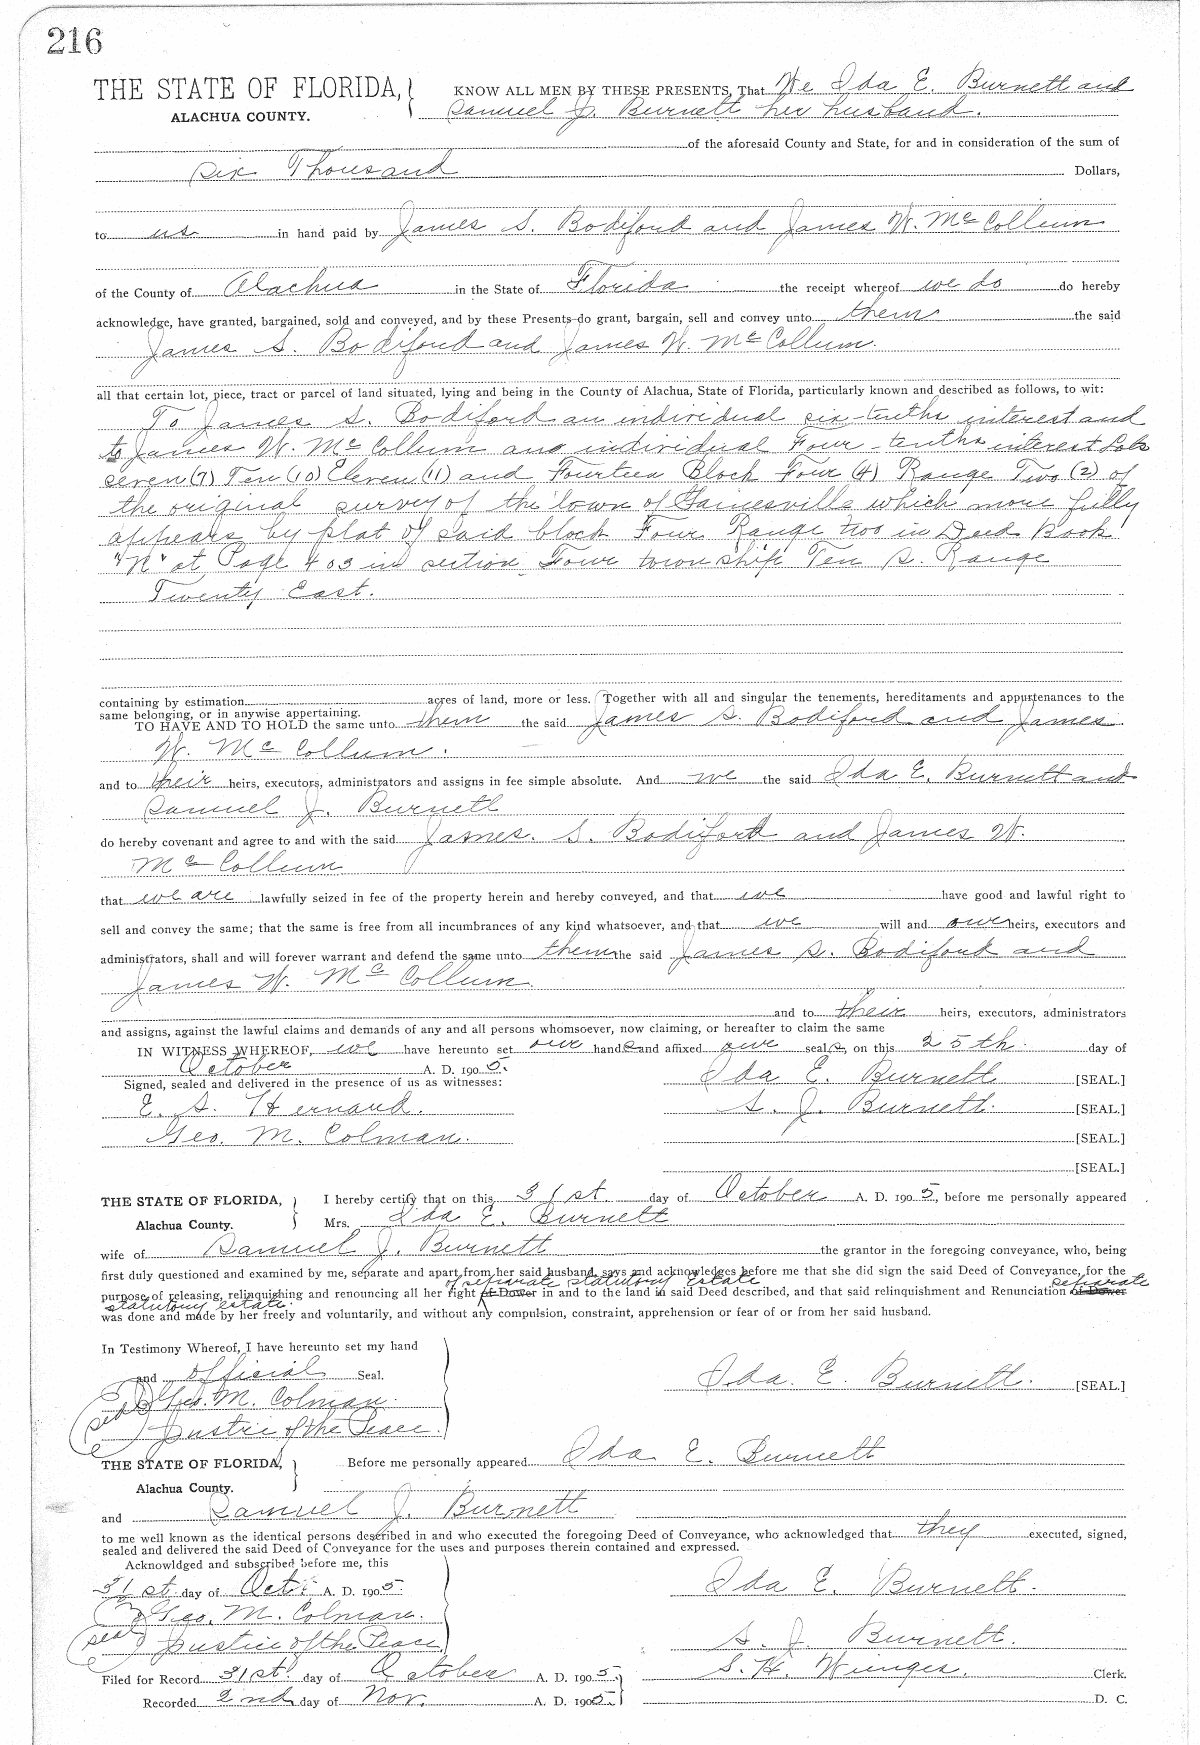 216
THE STATE OF FLORIDA, KNOW ALL MEN BY THESE PRESENTS, That We Ida E. Burnett and
ALACHUA COUNTY. Samuel J. Burnett her husband.
of the aforesaid County and State, for and in consideration of the sum of
Six Thousand Dollars,
to us in hand paid by James S. Bodiford and James W. McCollum
of the County of Alachua in the State of Florida the receipt whereof we do do hereby
acknowledge, have granted, bargained, sold and conveyed, and by these Presents do grant, bargain, sell and convey unto them the said
James S. Bodiford and James W. McCollum.
all that certain lot, piece, tract or parcel of land situated, lying and being in the County of Alachua, State of Florida, particularly known and described as follows, to wit:
To James S. Bodiford an individual six-tenths interest and
to James W. McCollum an individual Four-tenths interest Lots
seven (7) Ten (10) Eleven (11) and Fourteen Block Four (4) Range Two (2) of
the original survey of the town of Gainesville which more fully
appears by plat of said block Four Range two in Deed Book
"N" at Page 403 in section Four township Ten S. Range
Twenty East.
containing by estimation acres of land, more or less. Together with all and singular the tenements, hereditaments and appurtenances to the
same belonging, or in anywise appertaining.
TO HAVE AND TO HOLD the same unto them the said James S. Bodiford and James
W. McCollum.
and to their heirs, executors, administrators and assigns in fee simple absolute. And we the said Ida E. Burnett and
Samuel J. Burnett
do hereby covenant and agree to and with the said James. S. Bodiford and James W.
McCollum
that we are lawfully seized in fee of the property herein and hereby conveyed, and that we have good and lawful right to
sell and convey the same; that the same is free from all incumbrances of any kind whatsoever, and that we will and our heirs, executors and
administrators, shall and will forever warrant and defend the same unto them the said James S. Bodiford and
James W. McCollum
and to their heirs, executors, administrators
and assigns, against the lawful claims and demands of any and all persons whomsoever, now claiming, or hereafter to claim the same
IN WITNESS WHEREOF, we have hereunto set our hands and affixed our seals, on this 25th day of
October A. D. 1905.
Signed, sealed and delivered in the presence of us as witnesses: Ida E. Burnett [SEAL.]
E. S. Hernaud. S. J. Burnett. [SEAL.]
Geo. M. Colman. [SEAL.]
[SEAL.]
THE STATE OF FLORIDA, I hereby certify that on this 31st day of October A. D. 1905, before me personally appeared
Alachua County. Mrs. Ida E. Burnett
wife of Samuel J. Burnett the grantor in the foregoing conveyance, who, being
first duly questioned and examined by me, separate and apart from her said husband, says and acknowledges before me that she did sign the said Deed of Conveyance, for the
of separate statutory Estate separate
purpose of releasing, relinquishing and renouncing all her right of Dower in and to the land in said Deed described, and that said relinquishment and Renunciation of Dower
statutory estate.
was done and made by her freely and voluntarily, and without any compulsion, constraint, apprehension or fear of or from her said husband.
In Testimony Whereof, I have hereunto set my hand
and official Seal. Ida. E. Burnett. [SEAL.]
Geo. M. Colman.
seal Justice of the Peace.
THE STATE OF FLORIDA, Before me personally appeared Ida E. Burnett
Alachua County.
and Samuel J. Burnett
to me well known as the identical persons described in and who executed the foregoing Deed of Conveyance, who acknowledged that they executed, signed,
sealed and delivered the said Deed of Conveyance for the uses and purposes therein contained and expressed.
Acknowldged and subscribed before me, this
31st day of Oct. A. D. 1905 Ida E. Burnett.
Geo. M. Colman.
seal Justice of the Peace S. J. Burnett.
Filed for Record 31st. day of October A. D. 1905 S. H. Wienges. Clerk.
Recorded 2nd day of Nov. A. D. 1905 D. C.